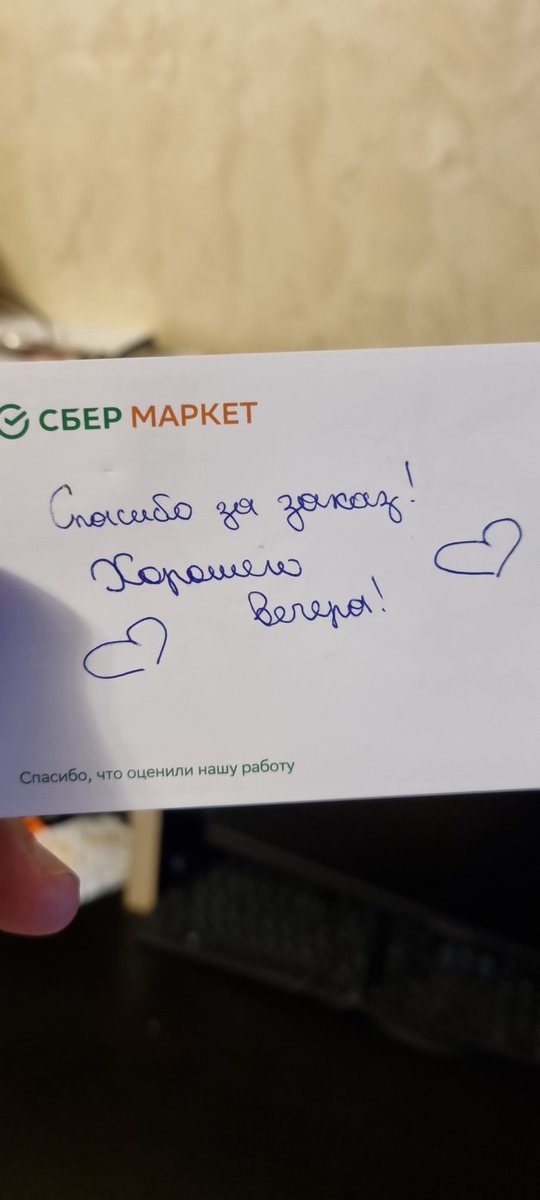 СБЕР МАРКЕТ
Спасибо за заказ!
Хорошего
Вечера!
Спасибо, что оценили нашу работу